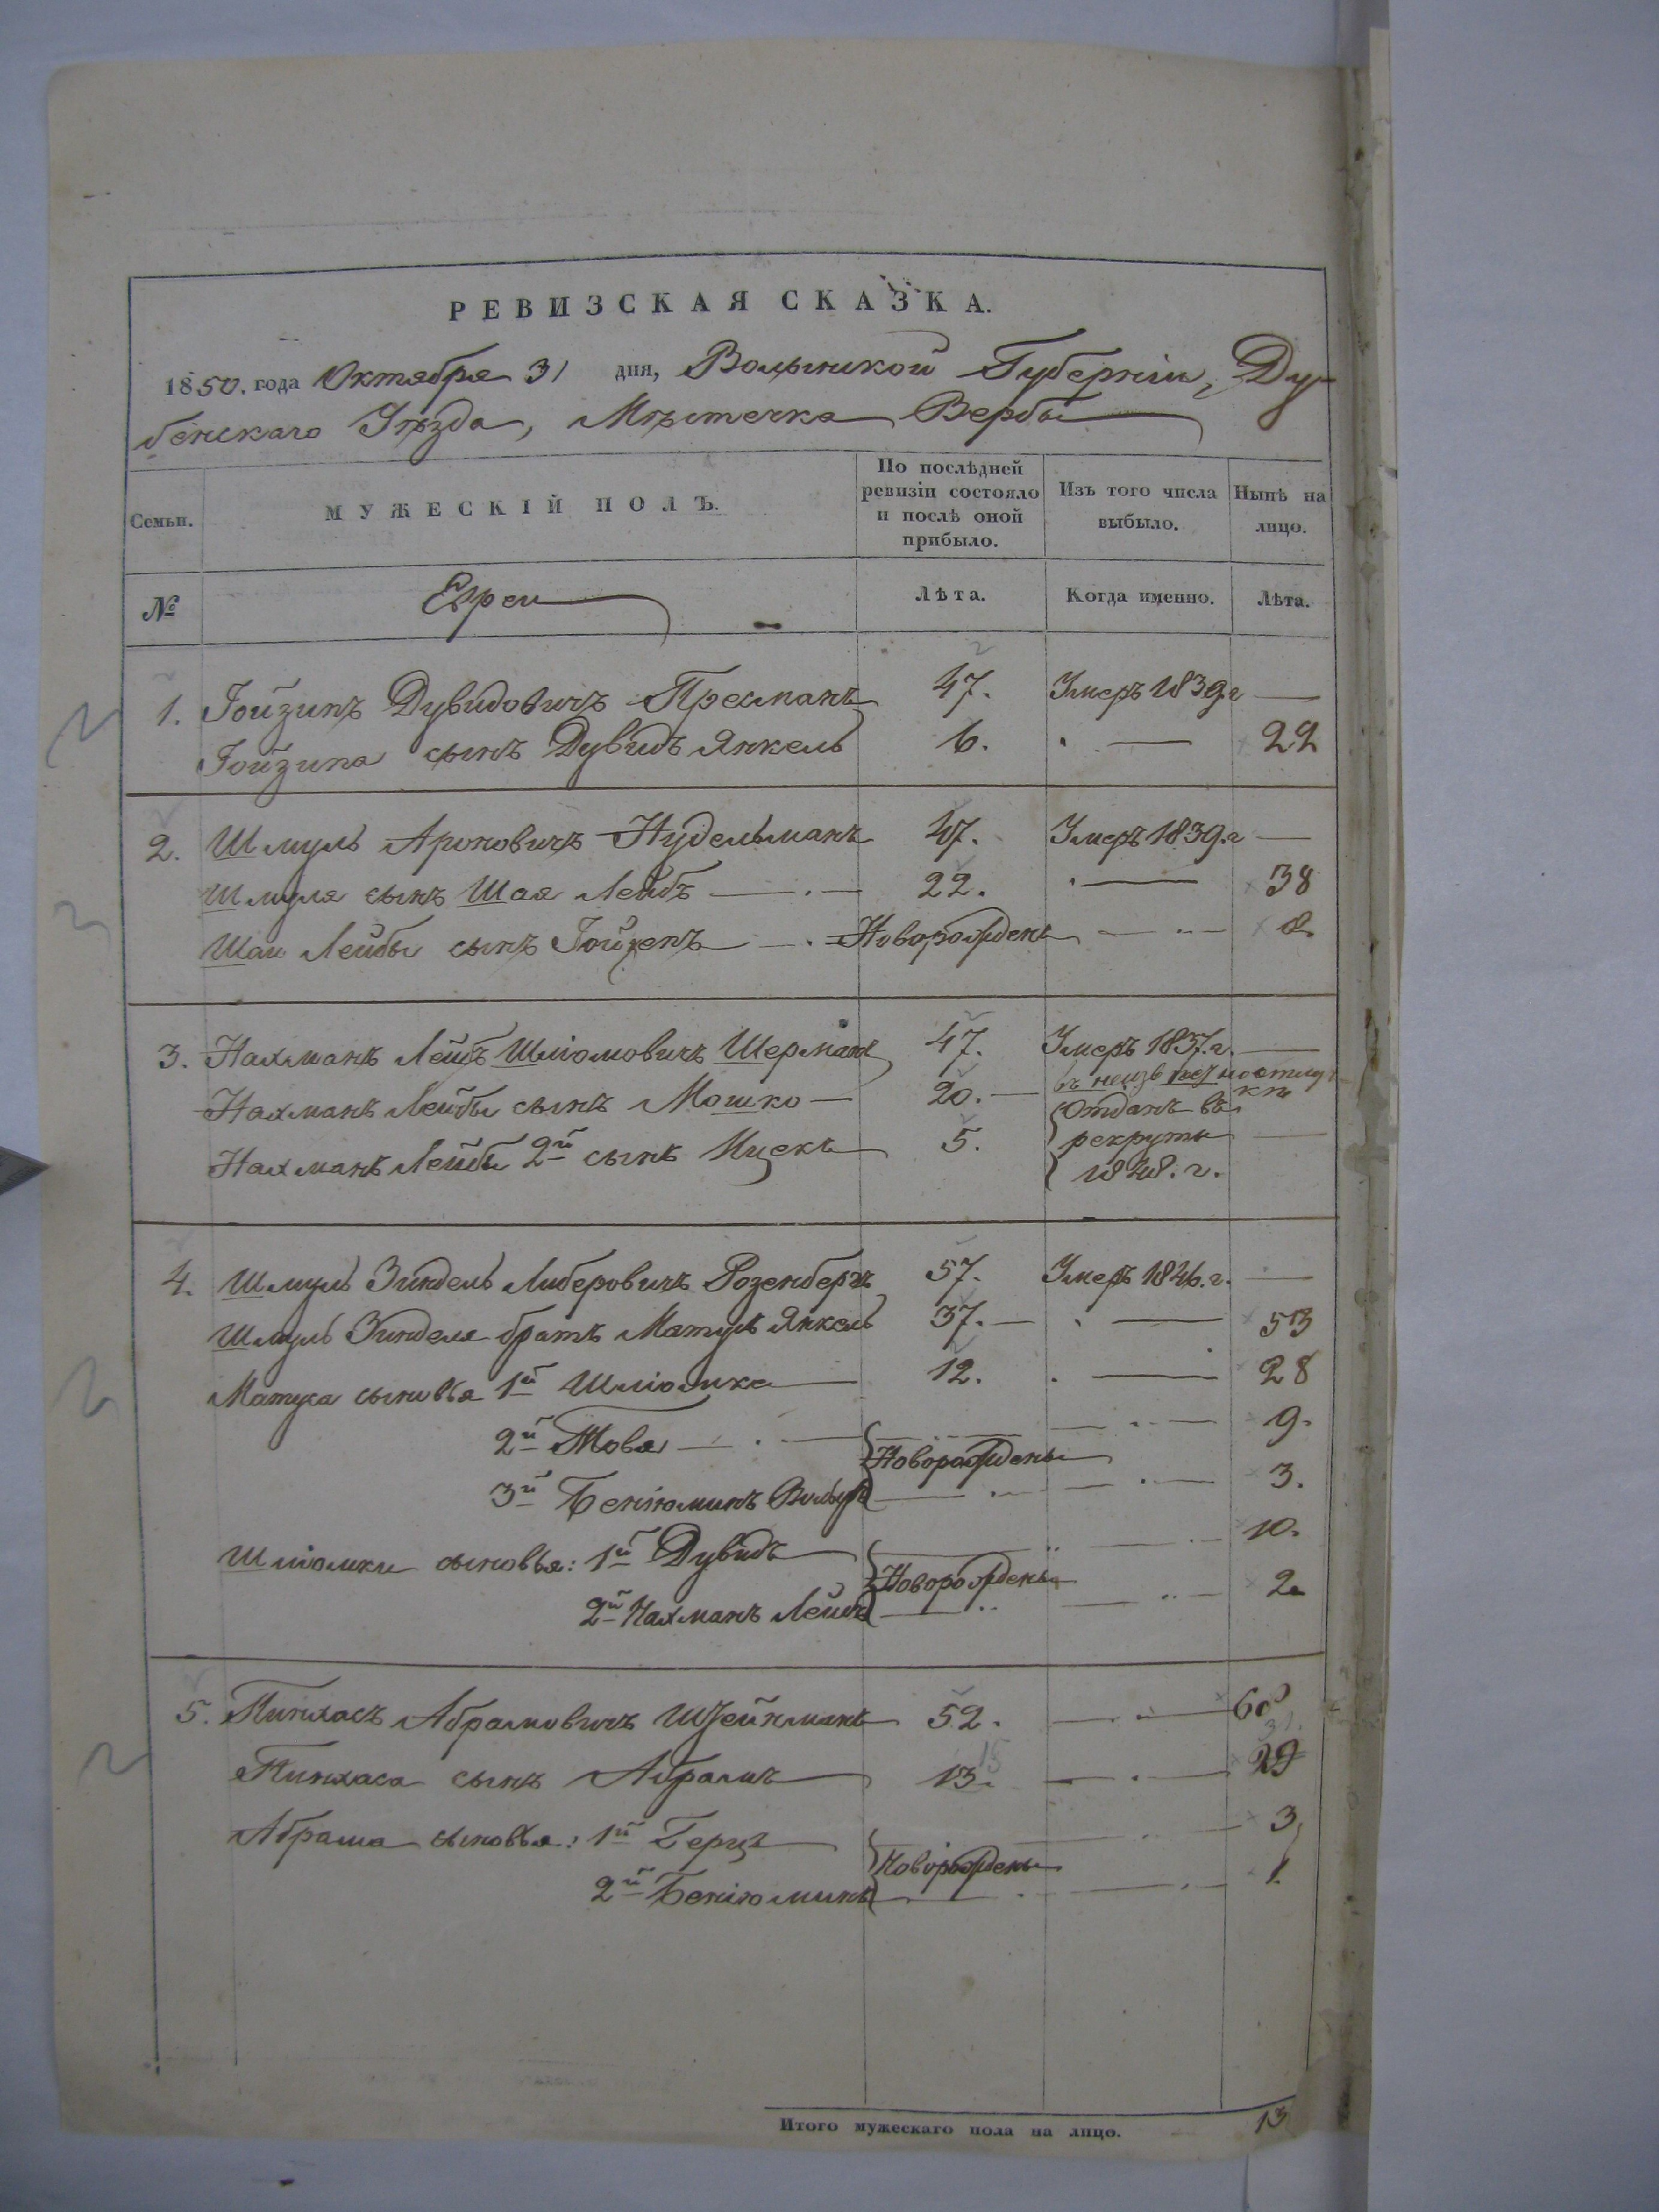 РЕВИЗСКАЯ СКАЗКА.
1850. года Октября 31 дня, Волынской Губерніи, Ду-
бенскаго Уѣзда, Мѣстечка Вербы
Семьи.
МУЖЕСКІЙ ПОЛЪ.
По послѣдней ревизіи состояло и послѣ оной прибыло.
Изъ того числа выбыло.
Нынѣ на лицо.
№ Евреи Лѣта. Когда именно. Лѣта.
1. Гойзинъ Дувидовичъ 47. Умеръ 1839 г —
Гойзина сынъ Дувидъ Янкель 6. — 22
2. Шмуль Ароновичъ Нудельманъ 47. Умеръ 1839. г —
Шмуля сынъ Шая Лейбъ — 22. — 38
Шаи Лейбы сынъ — Новорожденъ — 8
3. Нахманъ Лейбъ Шліомовичъ Шерманъ 47. Умеръ 1837. г. —
Нахманъ Лейбы сынъ Мошко — 20. — въ неизв
Нахманъ Лейбы 2й сынъ Ицекъ 5. Отданъ въ
рекруты —
1848. г.
4. Шмуль Зиндель Либеровичъ Розенбергъ 57. Умеръ 1846. г. —
Шмуль Зинделя братъ Матусъ Янкель 37. — 53
Матуса сыновья 1й Шліомка 12. — 28
2й — 9.
Новорожденъ
3й Беніюминъ Вольфъ — 3.
Шліомки сыновья: 1й Дувидъ — 10.
Новорожденъ
2й Нахманъ Лейбъ — 2
5. Пинхасъ Абрамовичъ Штейнманъ 52. — 68
31.
Пинхаса сынъ Абрамъ 13. 15 — 29
Абрама сыновья: 1й Герцъ — 3
Новорожденъ
2й Беніюминъ — 1.
Итого мужескаго пола на лицо. 13